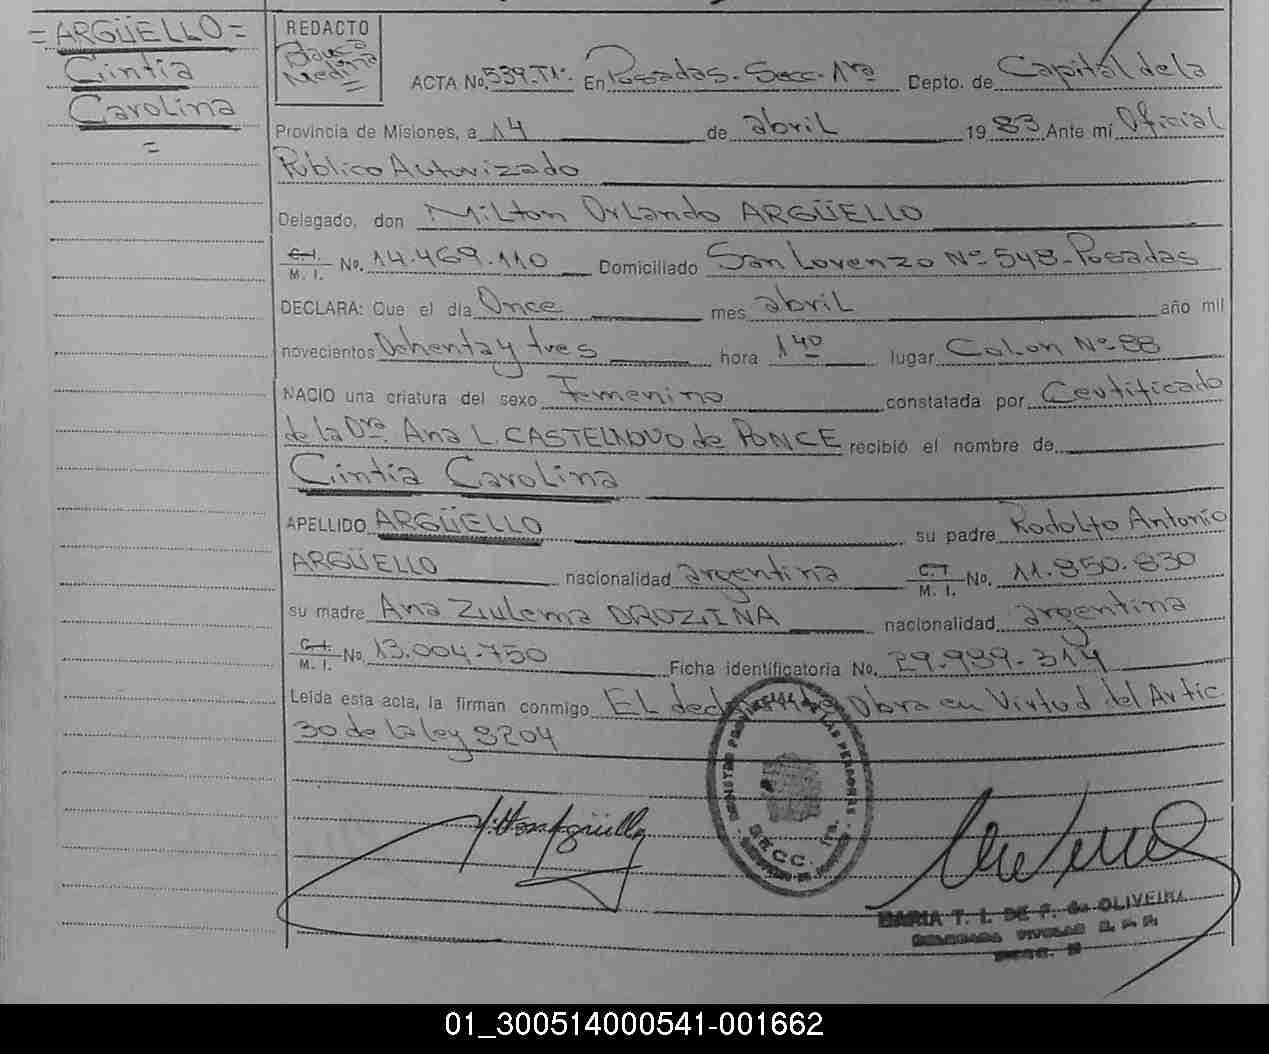 = ARGÜELLO =
Cintia
Carolina
=
REDACTO
Blanca
Medina
ACTA No. 539.T1º. En Posadas. Secc. 1ra Depto. de Capital de la
Provincia de Misiones, a 14 de abril 1983 Ante mí Oficial
Público Autorizado
Delegado, don Milton Orlando ARGÜELLO
C. I.
M. I. No. 14.469.110 Domiciliado San Lorenzo Nº 548-Posadas
DECLARA: Que el día Once mes abril año mil
novecientos Ochenta y tres hora 1 40 lugar Colon Nº 88
NACIO una criatura del sexo Femenino constatada por Certificado
de la Dra. Ana L. de PONCE recibió el nombre de
Cintia Carolina
APELLIDO ARGÜELLO su padre Rodolfo Antonio
ARGÜELLO nacionalidad argentina C. I.
M. I. No. 11.850.830
su madre Ana Zulema nacionalidad argentina
C. I.
M. I. No. 13.004.750 Ficha identificatoria No. 29.939.314
Leída esta acta, la firman conmigo El Obra en Virtud del Artic
30 de la ley 3204
REGISTRO PROVINCIAL DE LAS PERSONAS
SECC. 1ra.
Milton Argüello
MARIA T. I. DE F. de OLIVEIRA
DELEGADA TITULAR R. P. P.
01_300514000541-001662